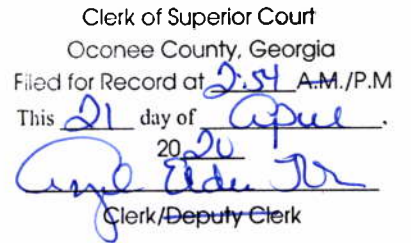 Clerk of Superior Court
Oconee County, Georgia
Filed for Record at 2:54 A.M./P.M
This 21 day of April.
2020
Elder
Clerk/Deputy Clerk